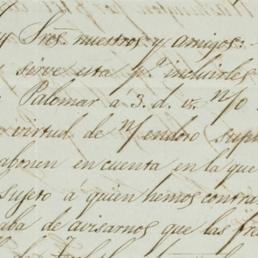 Sres. nuestros y amigos:
sirve esta pa. incluirles
Palomar a 3. d. v. n/o
virtud de n/ endoso
ponen en cuenta en la que
sujeto a quien hemos contra
aba de avisarnos que las fra